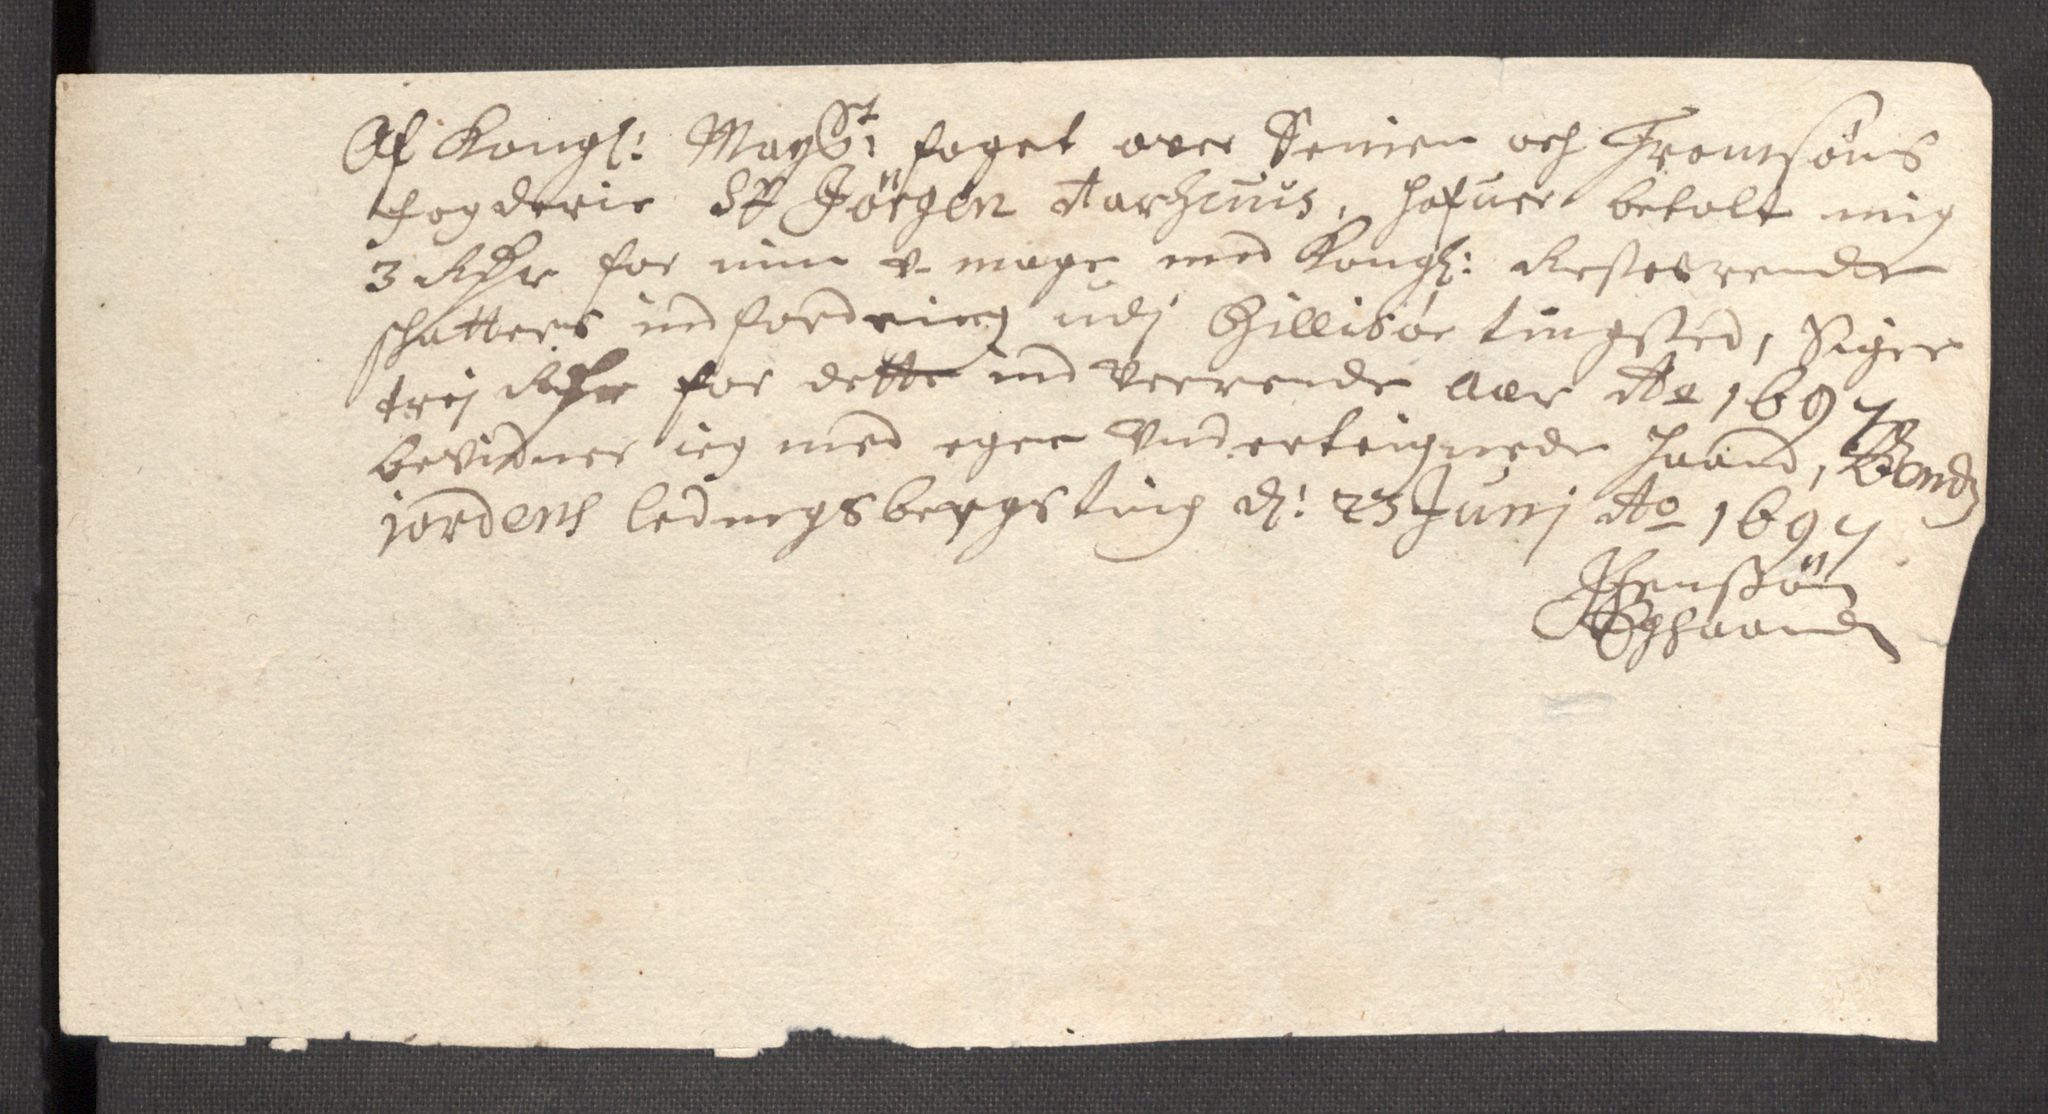 Af Kongl: Mayst: foget over Senien och Tromsøns
fogderie Sr Jörgen Aarhuus, hafuer betalt mig
3 Rdr for min v-mage med Kongl: Resterende
schatters indfordring udj Gillisøe tingsted, Siger
trej Rdr for dette ind verrende aar Ao 1697
bevidner ieg med egen Vnderteignede haand,
jordens ledingsbergs ting d: 23 Junj Ao 1697
Jensøn
Eghaand